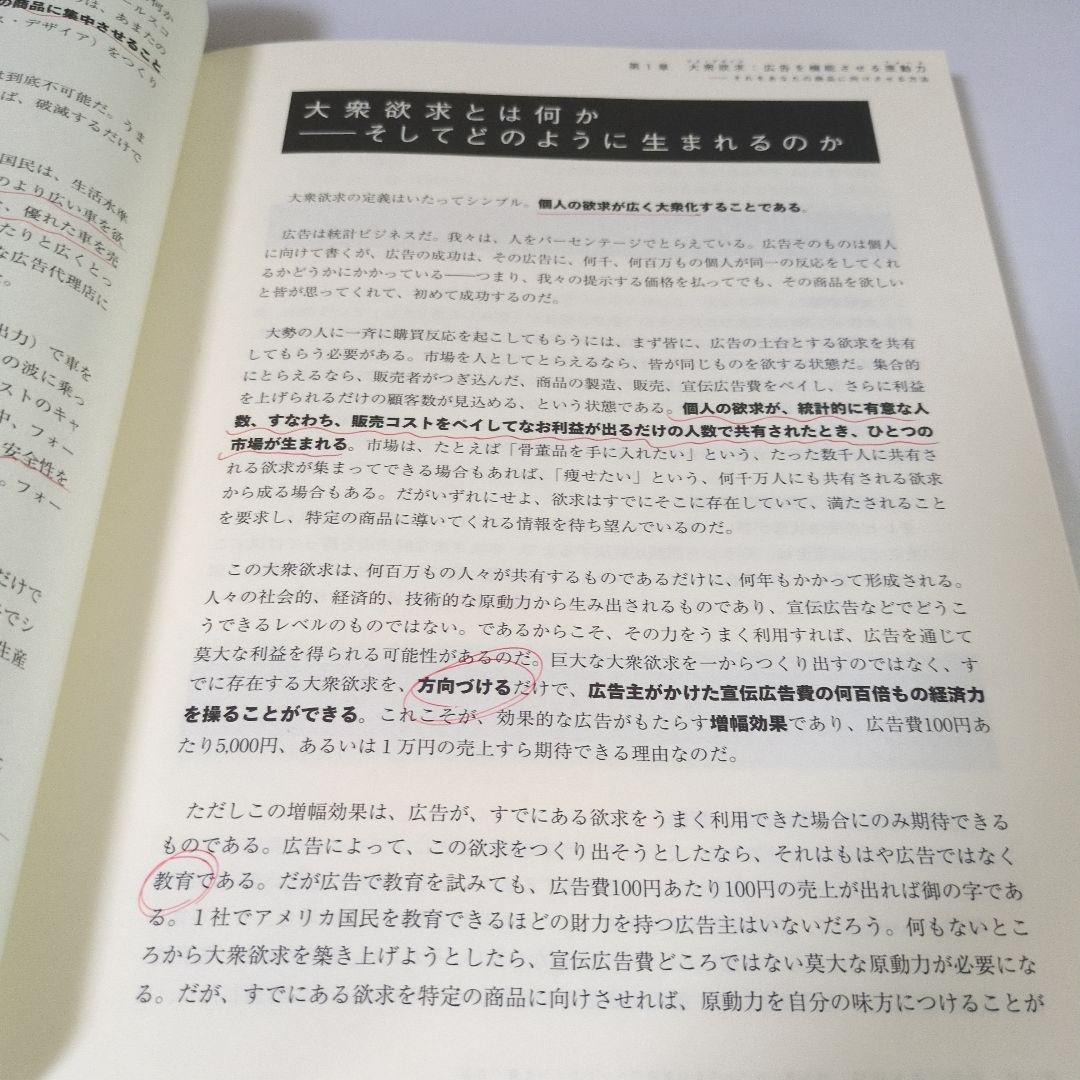 何か
ールスコ
は、あまたの
の商品に集中させること
ス・デザイア）をつくり
は到底不可能だ。うま
ば、破滅するだけで
国民は、生活水準
のより広い車を欲
、優れた車を売
たりと広くとっ
な広告代理店に
。
出力）で車を
の波に乗っ
ストのキャ
中、フォー
安全性を
。フォー
だけで
とでシ
生産
第1章 大衆欲求：広告を機能させる原動力
――それをあなたの商品に向けさせる方法
大衆欲求とは何か
――そしてどのように生まれるのか
大衆欲求の定義はいたってシンプル。個人の欲求が広く大衆化することである。
広告は統計ビジネスだ。我々は、人をパーセンテージでとらえている。広告そのものは個人
に向けて書くが、広告の成功は、その広告に、何千、何百万もの個人が同一の反応をしてくれ
るかどうかにかかっている――つまり、我々の提示する価格を払ってでも、その商品を欲しい
と皆が思ってくれて、初めて成功するのだ。
大勢の人に一斉に購買反応を起こしてもらうには、まず皆に、広告の土台とする欲求を共有
してもらう必要がある。市場を人としてとらえるなら、皆が同じものを欲する状態だ。集合的
にとらえるなら、販売者がつぎ込んだ、商品の製造、販売、宣伝広告費をペイし、さらに利益
を上げられるだけの顧客数が見込める、という状態である。個人の欲求が、統計的に有意な人
数、すなわち、販売コストをペイしてなお利益が出るだけの人数で共有されたとき、ひとつの
市場が生まれる。市場は、たとえば「骨董品を手に入れたい」という、たった数千人に共有さ
れる欲求が集まってできる場合もあれば、「痩せたい」という、何千万人にも共有される欲求
から成る場合もある。だがいずれにせよ、欲求はすでにそこに存在していて、満たされること
を要求し、特定の商品に導いてくれる情報を待ち望んでいるのだ。
この大衆欲求は、何百万もの人々が共有するものであるだけに、何年もかかって形成される。
人々の社会的、経済的、技術的な原動力から生み出されるものであり、宣伝広告などでどうこ
うできるレベルのものではない。であるからこそ、その力をうまく利用すれば、広告を通じて
莫大な利益を得られる可能性があるのだ。巨大な大衆欲求を一からつくり出すのではなく、す
でに存在する大衆欲求を、方向づけるだけで、広告主がかけた宣伝広告費の何百倍もの経済力
を操ることができる。これこそが、効果的な広告がもたらす増幅効果であり、広告費100円あ
たり5,000円、あるいは１万円の売上すら期待できる理由なのだ。
ただしこの増幅効果は、広告が、すでにある欲求をうまく利用できた場合にのみ期待できる
ものである。広告によって、この欲求をつくり出そうとしたなら、それはもはや広告ではなく
教育である。だが広告で教育を試みても、広告費100円あたり100円の売上が出れば御の字であ
る。１社でアメリカ国民を教育できるほどの財力を持つ広告主はいないだろう。何もないとこ
ろから大衆欲求を築き上げようとしたら、宣伝広告費どころではない莫大な原動力が必要にな
る。だが、すでにある欲求を特定の商品に向けさせれば、原動力を自分の味方につけることが